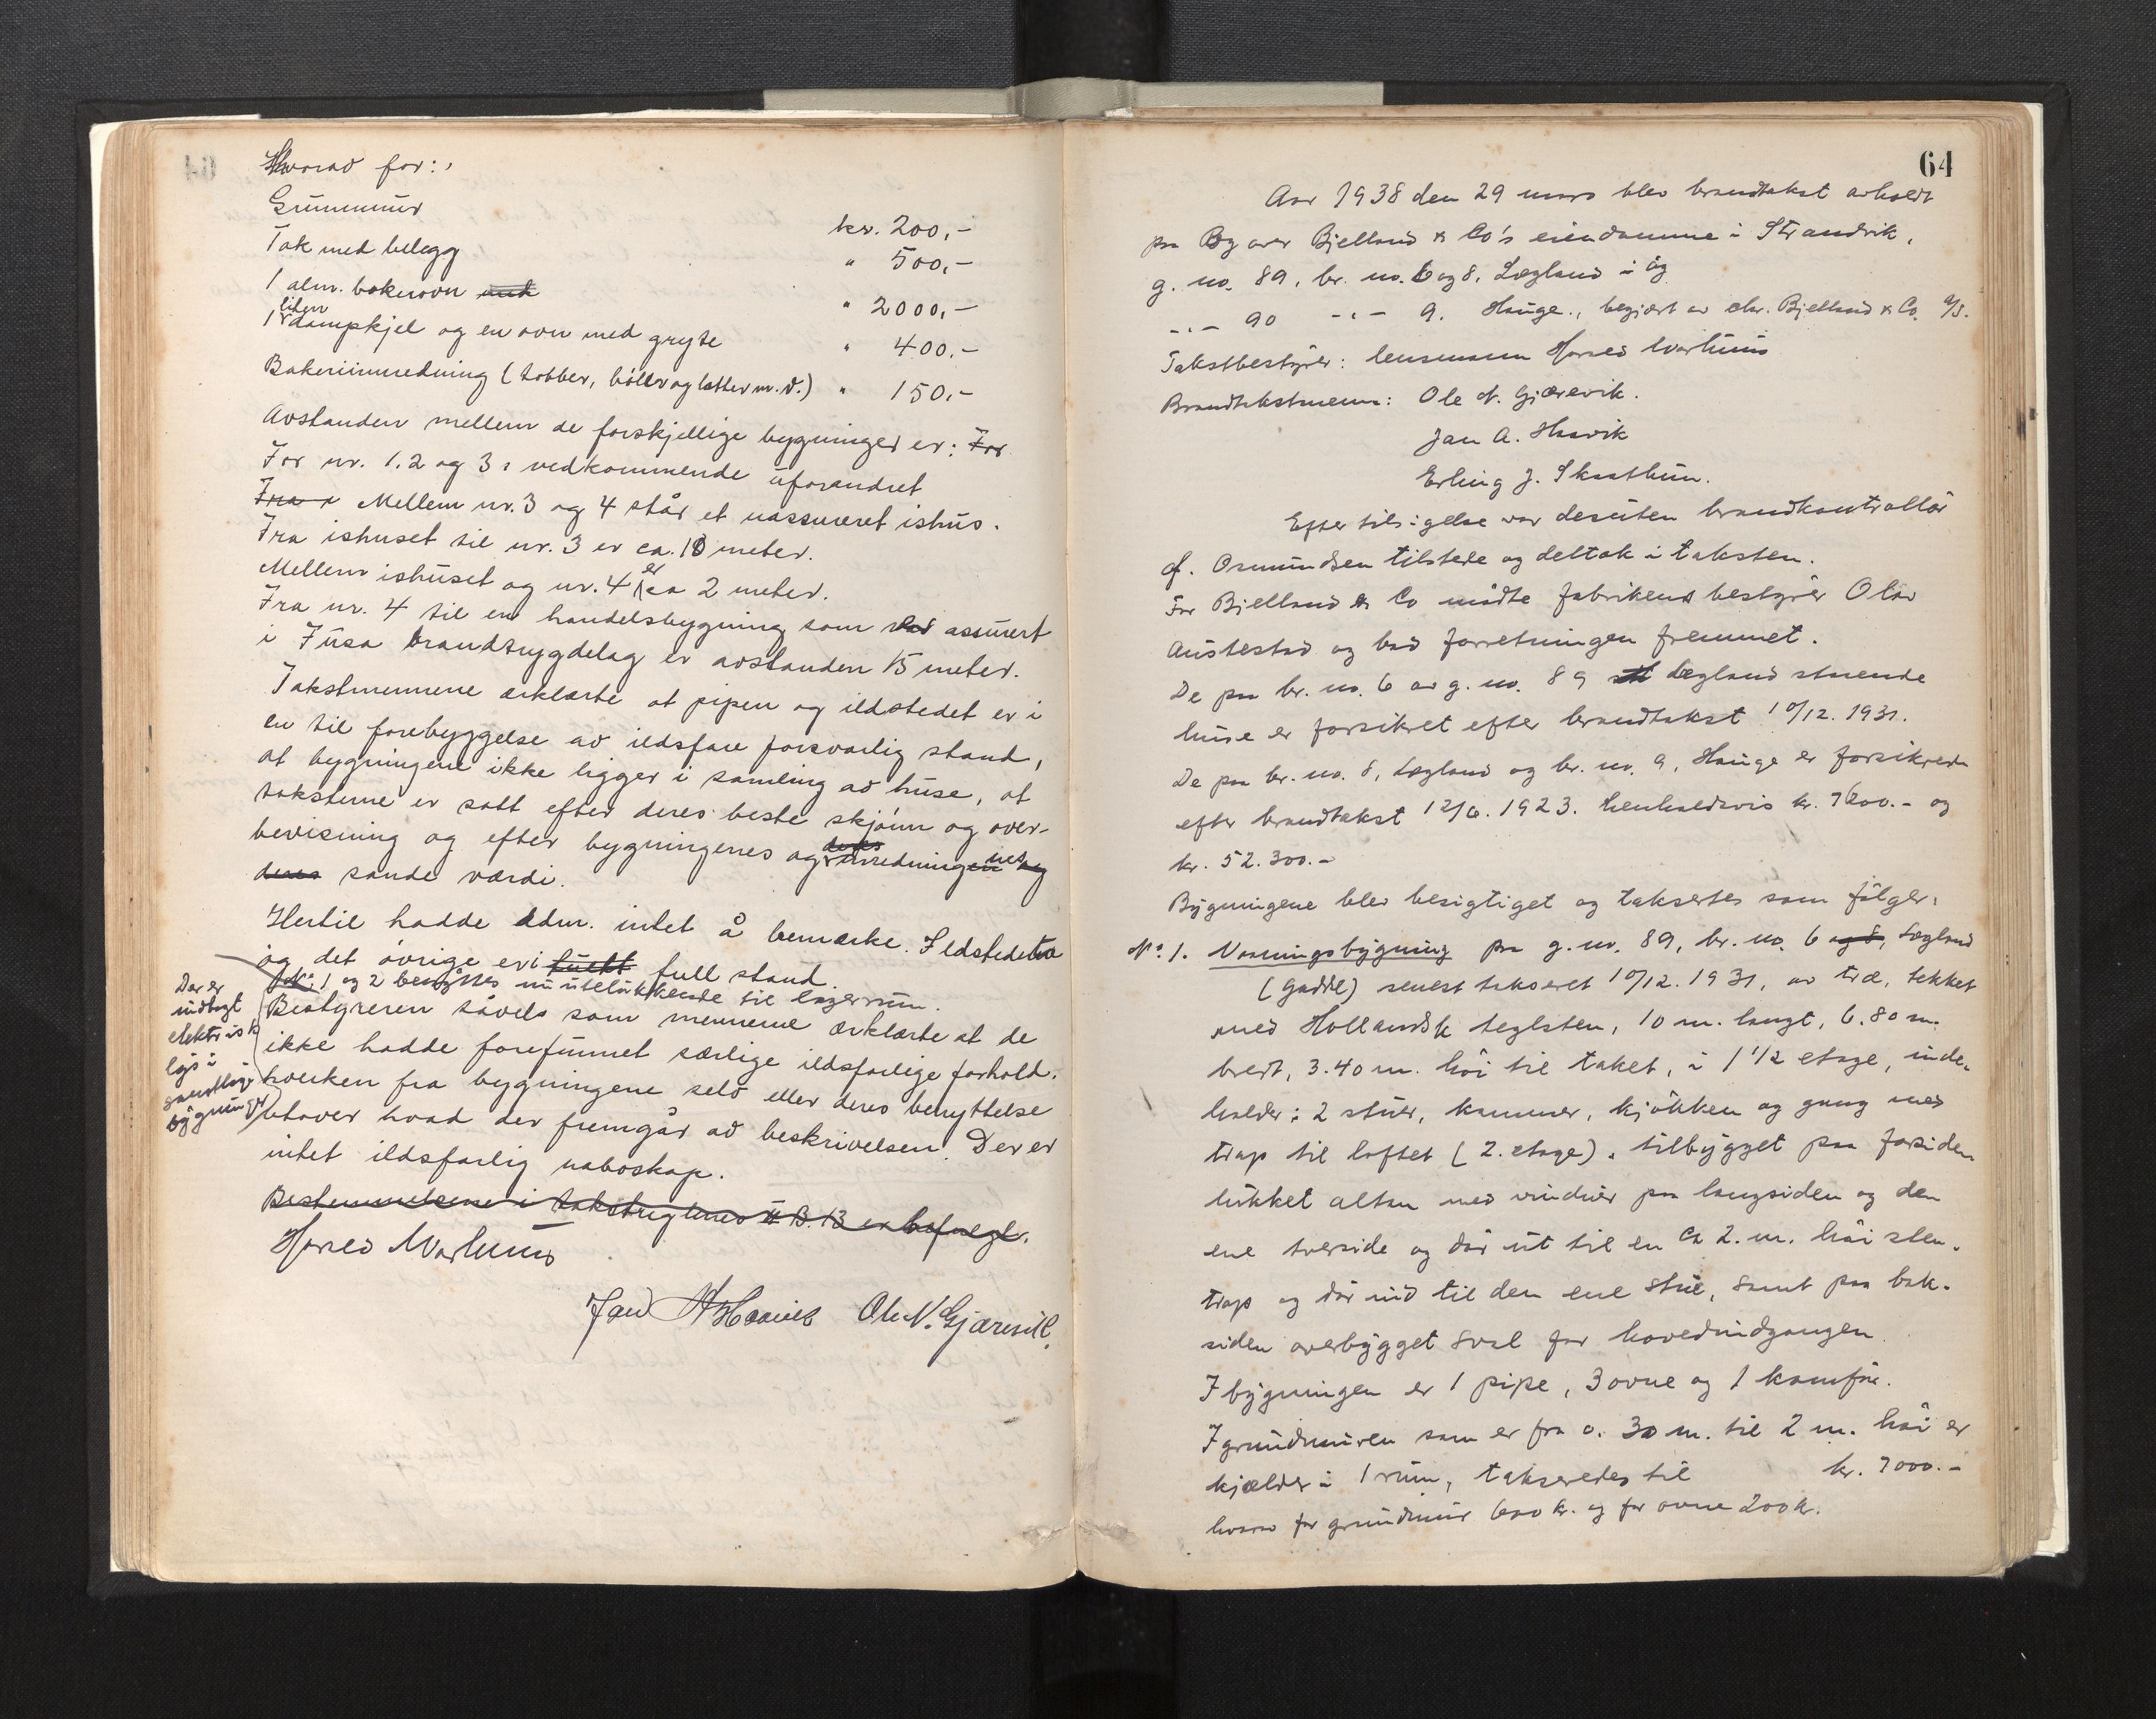 Hvorav for:
Grunnmur kr. 200,-
Tak med belegg " 500,-
1 alm. bakerovn med " 2000,-
1 liten dampkjel og en ovn med gryte " 400.-
Bakeriinnredning (tobber, boller og latter m.v.) " 150,-
Avstanden mellem de forskjellige bygninger er: For
For nr. 1. 2 og 3 s vedkommende uforandret
Fra i Mellem nr. 3 og 4 står et uassureret ishus.
Fra ishuset til nr. 3 er ca. 10 meter.
Mellem ishuset og nr. 4 er ca 2 meter.
Fra nr. 4 til en handelsbygning som assurert
i Fusa brandtrygdelag er avstanden 15 meter.
Takstmennene erklærte at pipen og ildstedet er i
en til forebyggelse av ildsfare forsvarlig stand,
at bygningene ikke ligger i samling av huse, at
taksterne er satt efter deres beste skjønn og over-
bevisning og efter bygningenes og deres innredningenes og
deres sande værdi.
Hertil hadde edm. intet å bemærke. Ildstedetna
og det øvrige er i fuldt full stand.
No: 1 og 2 benyttes nu utelukkende til lagerrum.
Der er
indlagt
elektrisk
lys i
samtlige
bygninger
Bestyreren såvels som mennene erklærte at de
ikke hadde forefunnet særlige ildsfarlige forhold.
hverken fra bygningene selv eller deres benyttelse
utover hvad der fremgår av beskrivelsen. Der er
intet ildsfarlig naboskap.
Bestemmelsene i takstreglenes II B. 13 er befulgt.
Hans Warhuus
Jan A Haavik Ole N. Gjærevik.
64
Aar 1938 den 29 mars blev brandtakst avholdt
paa Bjelland & Co's eiendomme i Strandvik,
g. no. 89, br. no. 6 og 8, Lægland i og
-"- 90 -"- 9. Hauge., begjært av Chr. Bjelland & Co. A/S.
Takstbestyrer: lensmann Warhuus
Brandtakstmenn: Ole N. Gjærevik.
Jan A. Haavik
Erling J. Skaathun.
Efter tilsigelse var desuten brandkontrollør
Osmundsen tilstede og deltok i taksten.
For Bjelland & Co møtte fabrikens bestyrer Olav
Austestad og bad forretningen fremmet.
De paa br. no. 6 av g. no. 89 Lægland staaende
huse er forsikret efter brandtakst 10/12. 1931.
De paa br. no. 8, Lægland og br. no. 9, Hauge er forsikrede
efter brandtakst 12/6. 1923. henholdsvis kr. 7600.- og
kr. 52.300.-
Bygningene blev besigtiget og taksertes som følger:
No. 1. Vaaningsbygning paa g. no. 89, br. no. 6 og 8, Lægland
(Gadde) senest taksert 10/12. 1931, av træ, tekket
med Hollandsk teglsten, 10 m. langt, 6.80 m.
bredt, 3.40 m. høi til taket, i 1 1/2 etage, inde-
holder: 2 stuer, kammer, kjøkken og gang med
trap til loftet (2. etage). tilbygget paa forsiden
lukket altan med vinduer paa langsiden og den
ene tverside og dør ut til en ca 2. m. høi sten-
trap og dør ind til den ene stue, samt paa bak-
siden overbygget sval for hovedindgangen.
I bygningen er 1 pipe, 3 ovne og 1 komfur.
I grundmuren som er fra 0. 30 m. til 2 m. høi er
kjælder i 1 rum, takseredes til kr. 7000.-
hvorav for grundmur 600 kr. og for ovne 200 kr.